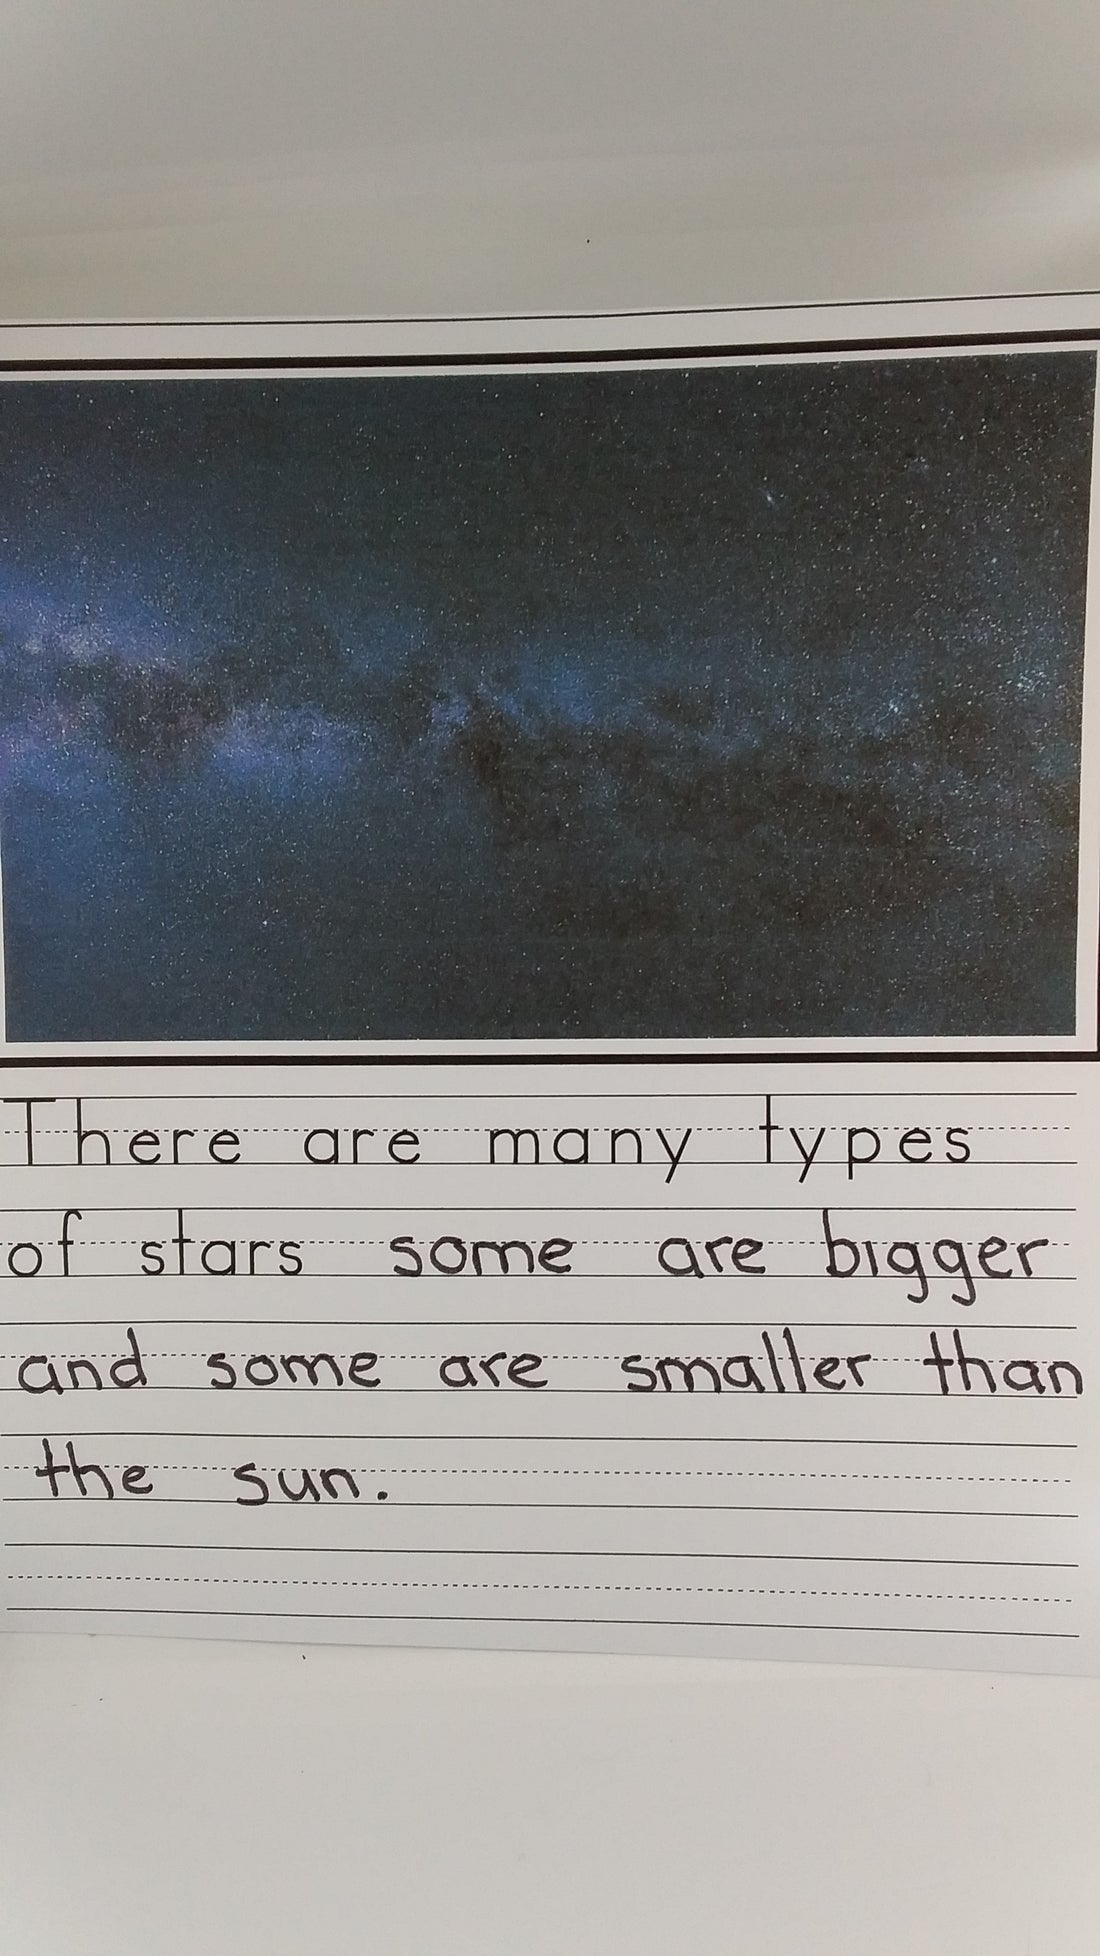 There are many types
of stars some are bigger
and some are smaller than
the sun.